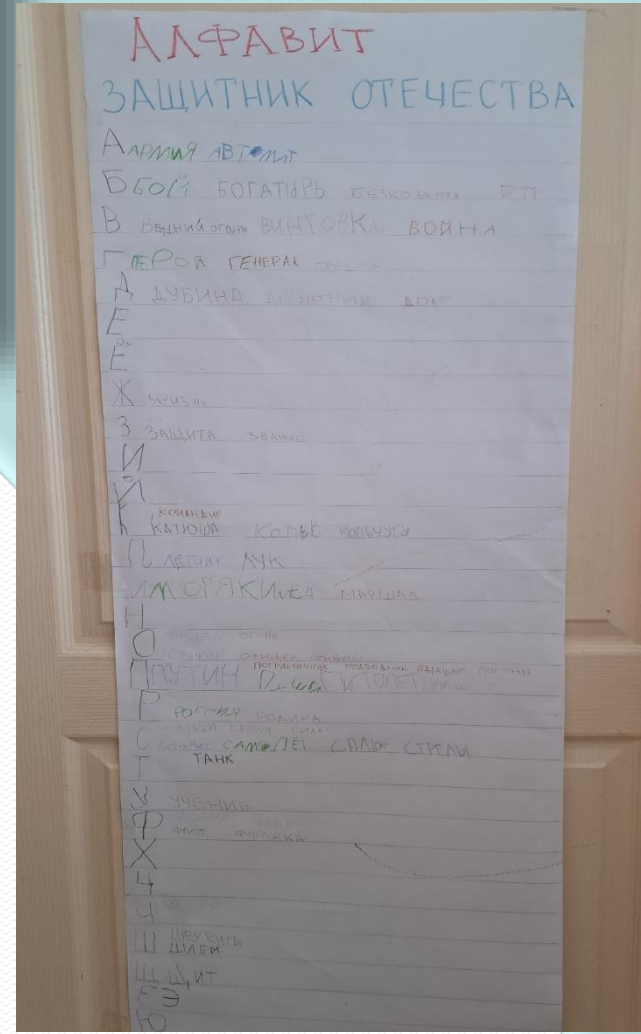 АЛФАВИТ
ЗАЩИТНИК ОТЕЧЕСТВА
А АРМИЯ АВТОМАТ
Б БОЙ БОГАТЫРЬ
В Вечный огонь ВИНТОВКА ВОЙНА
Г ГЕРОЙ ГЕНЕРАЛ
Д ДУБИНА ДЕСАНТНИК ДОЛГ
Е
Ё
Ж ЖИЗНЬ
З ЗАЩИТА ЗВАНИЕ
И
Й
КОМАНДИР
К КАТЮША КОПЬЁ КОЛЬЧУГА
Л ЛЕТЧИК ЛУК
М МОРЯКИ МЕЧ МАРШАЛ
Н
О ОГОНЬ
ОРУЖИЕ ОФИЦЕР
П ПУТИН ПОГРАНИЧНИК ПОДВОДНИК ПАРАШЮТ ПОГОНЫ
Р РОССИЯ РОДИНА
СЛУЖБА СИЛА
С СОЛДАТ САМОЛЕТ САЛЮТ СТРЕЛЫ
Т ТАНК
У УЧЕНИЕ
Ф ФЛОТ ФУРАЖКА
Х
Ц
Ч
Ш ШЛЕМ
Щ ЩИТ
Э
Ю